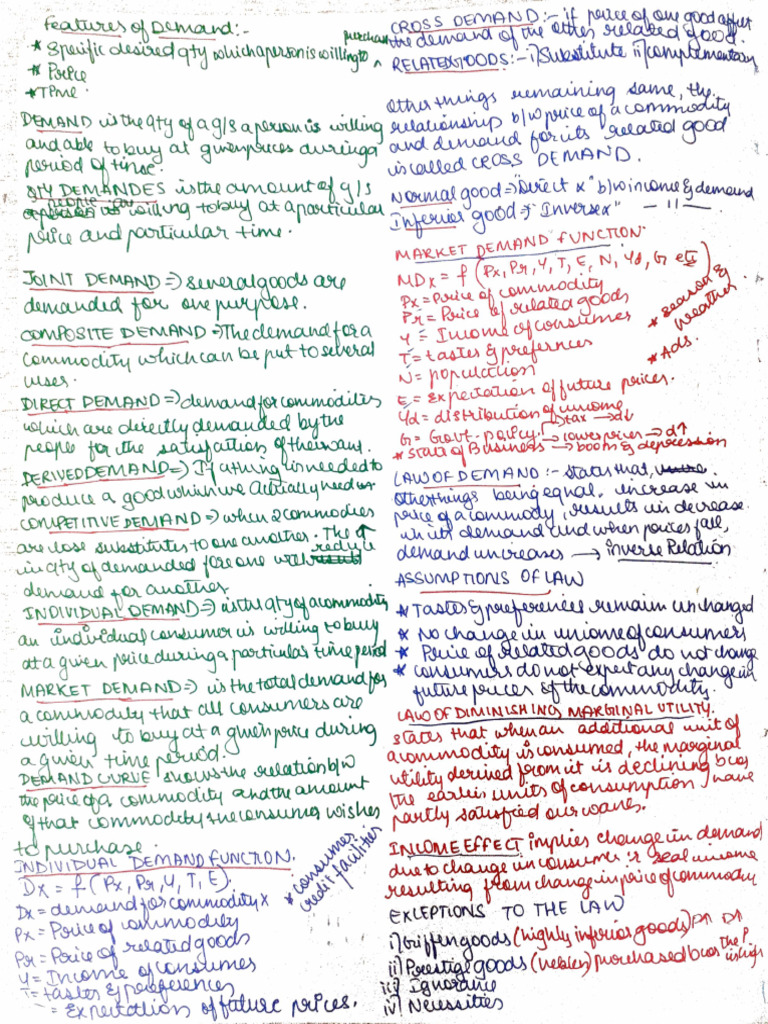 Features of Demand:-
* Specific desired qty which a person is willing to ^ purchase
* Price
* Time
DEMAND is the qty of a g/s a person is willing
and able to buy at given prices during a
period of time.
QTY DEMANDES is the amount of g/s
people are willing to buy at a particular
price and particular time.
JOINT DEMAND => several goods are
demanded for one purpose.
COMPOSITE DEMAND => The demand for a
commodity which can be put to several
uses.
DIRECT DEMAND => demand for commodities
which are directly demanded by the
people for the satisfaction of their want.
DERIVED DEMAND => If a thing is needed to
produce a good which we actually need
COMPETITIVE DEMAND => when 2 commodies
are close substitutes to one another. The ↑
in qty of demanded for one will reduce
demand for another.
INDIVIDUAL DEMAND => is the qty of a commodity
an individual consumer is willing to buy
at a given price during a particular time period
MARKET DEMAND => is the total demand for
a commodity that all consumers are
willing to buy at a given price during
a given time period.
DEMAND CURVE shows the relation b/w
the price of a commodity and the amount
of that commodity the consumer wishes
to purchase.
INDIVIDUAL DEMAND FUNCTION.
Dx = f (Px, Pr, Y, T, E).
Dx = demand for commodity x
Px = Price of commodity
Pr = Price of related goods
Y = Income of consumers
T = tastes & preferences
= Expectation of future prices.
* consumer
credit facilities
CROSS DEMAND :- if price of one good affect
the demand of the other related good.
RELATEXGOODS :- i) Substitute ii) complementary
Other things remaining same, the
relationship b/w price of a commodity
and demand for its related good
is called CROSS DEMAND.
Normal good => "Direct x" b/w income & demand
Inferior good => "Inverse x" — 11 —
MARKET DEMAND FUNCTION.
MDx = f (Px, Pr, Y, T, E, N, Yd, G etc)
Px = Price of commodity
Pr = Price of related goods
Y = Income of consumers
T = tastes & prefernces
N = population
E = Expectation of future prices.
Yd = distribution of income
G = Govt. policy. → tax → d↓
→ lower prices → d↑
* State of Business → boom & depression
* season &
weather.
* Ads.
LAW OF DEMAND :- states that,
other things being equal, increase in
price of a commody, results in decrease
in its demand and when prices fall,
demand increases → inverse Relation
ASSUMPTIONS OF LAW
* Tastes & preferences remain unchanged
* No change in income of consumers
* Price of related goods do not change
* consumers do not expect any change in
future prices of the commodity.
LAW OF DIMINISHING MARGINAL UTILITY.
states that when an additional unit of
a commodity is consumed, the marginal
utility derived from it is declining bcos
the earlier units of consumption have
partly satisfied our wants.
INCOME EFFECT implies change in demand
due to change in consumer's real income
resulting from change in price of commody
EXCEPTIONS TO THE LAW
i) Giffen goods (highly inferior goods) P↑ D↑
ii) Prestige goods (veblen) purchased bcos the P is high
iii) Ignorance
iv) Necessities